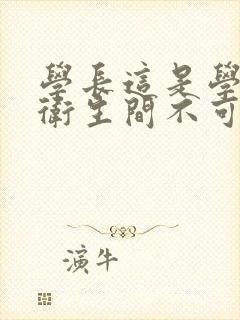 學長這是學
衛生間不可
演牛